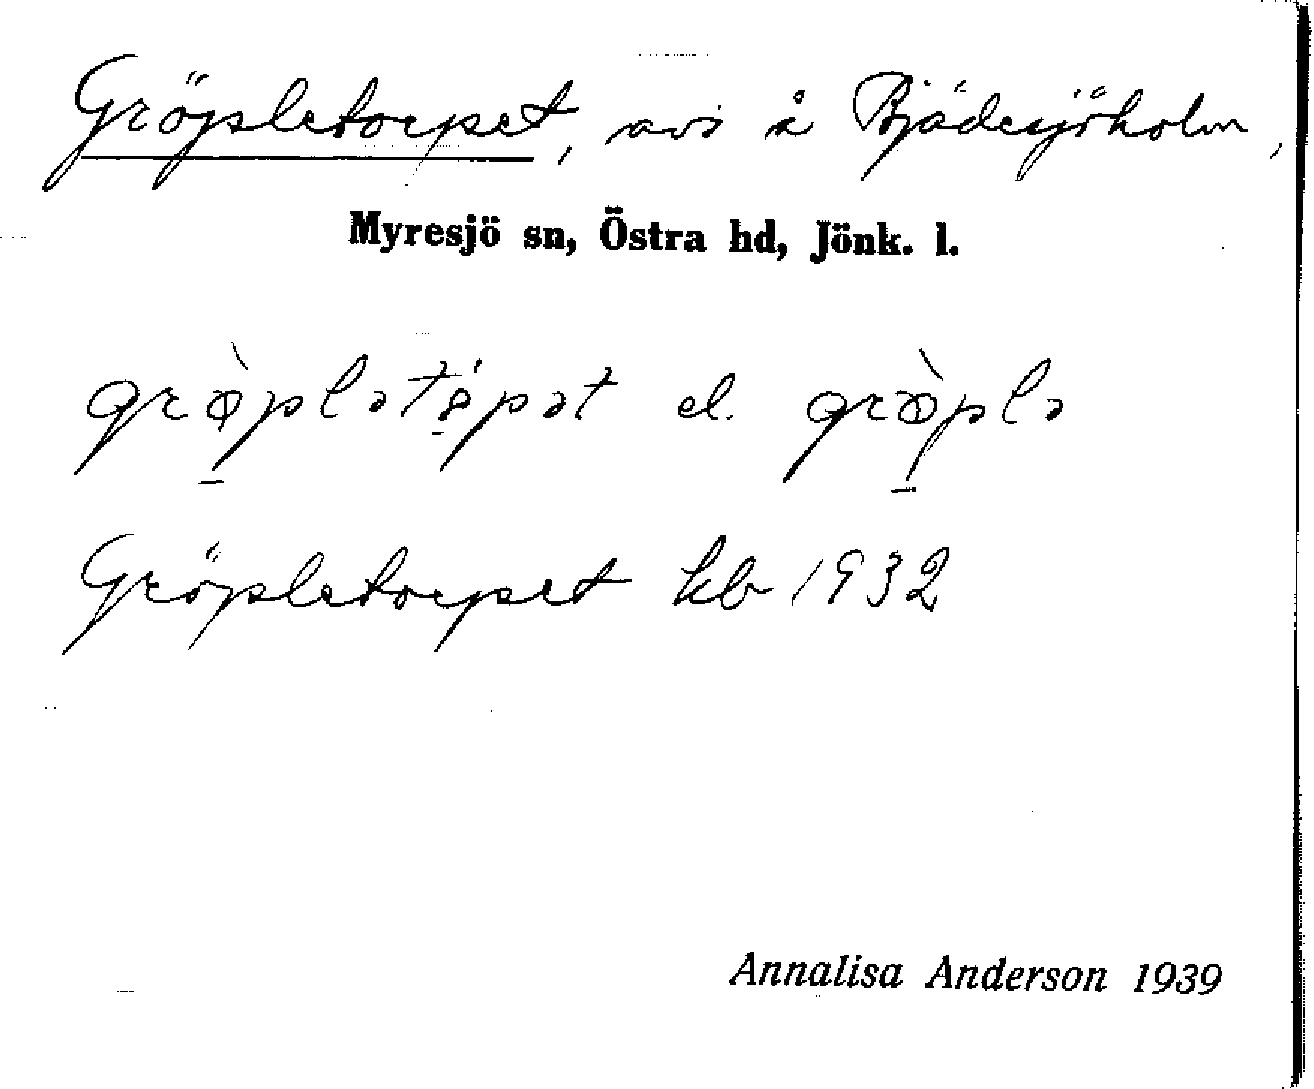 Gröpletorpet, avs å Bjädesjöholm,
Myresjö sn, Östra hd, Jönk. l.
el.
Gröpletorpet kb 1932
Annalisa Anderson 1939